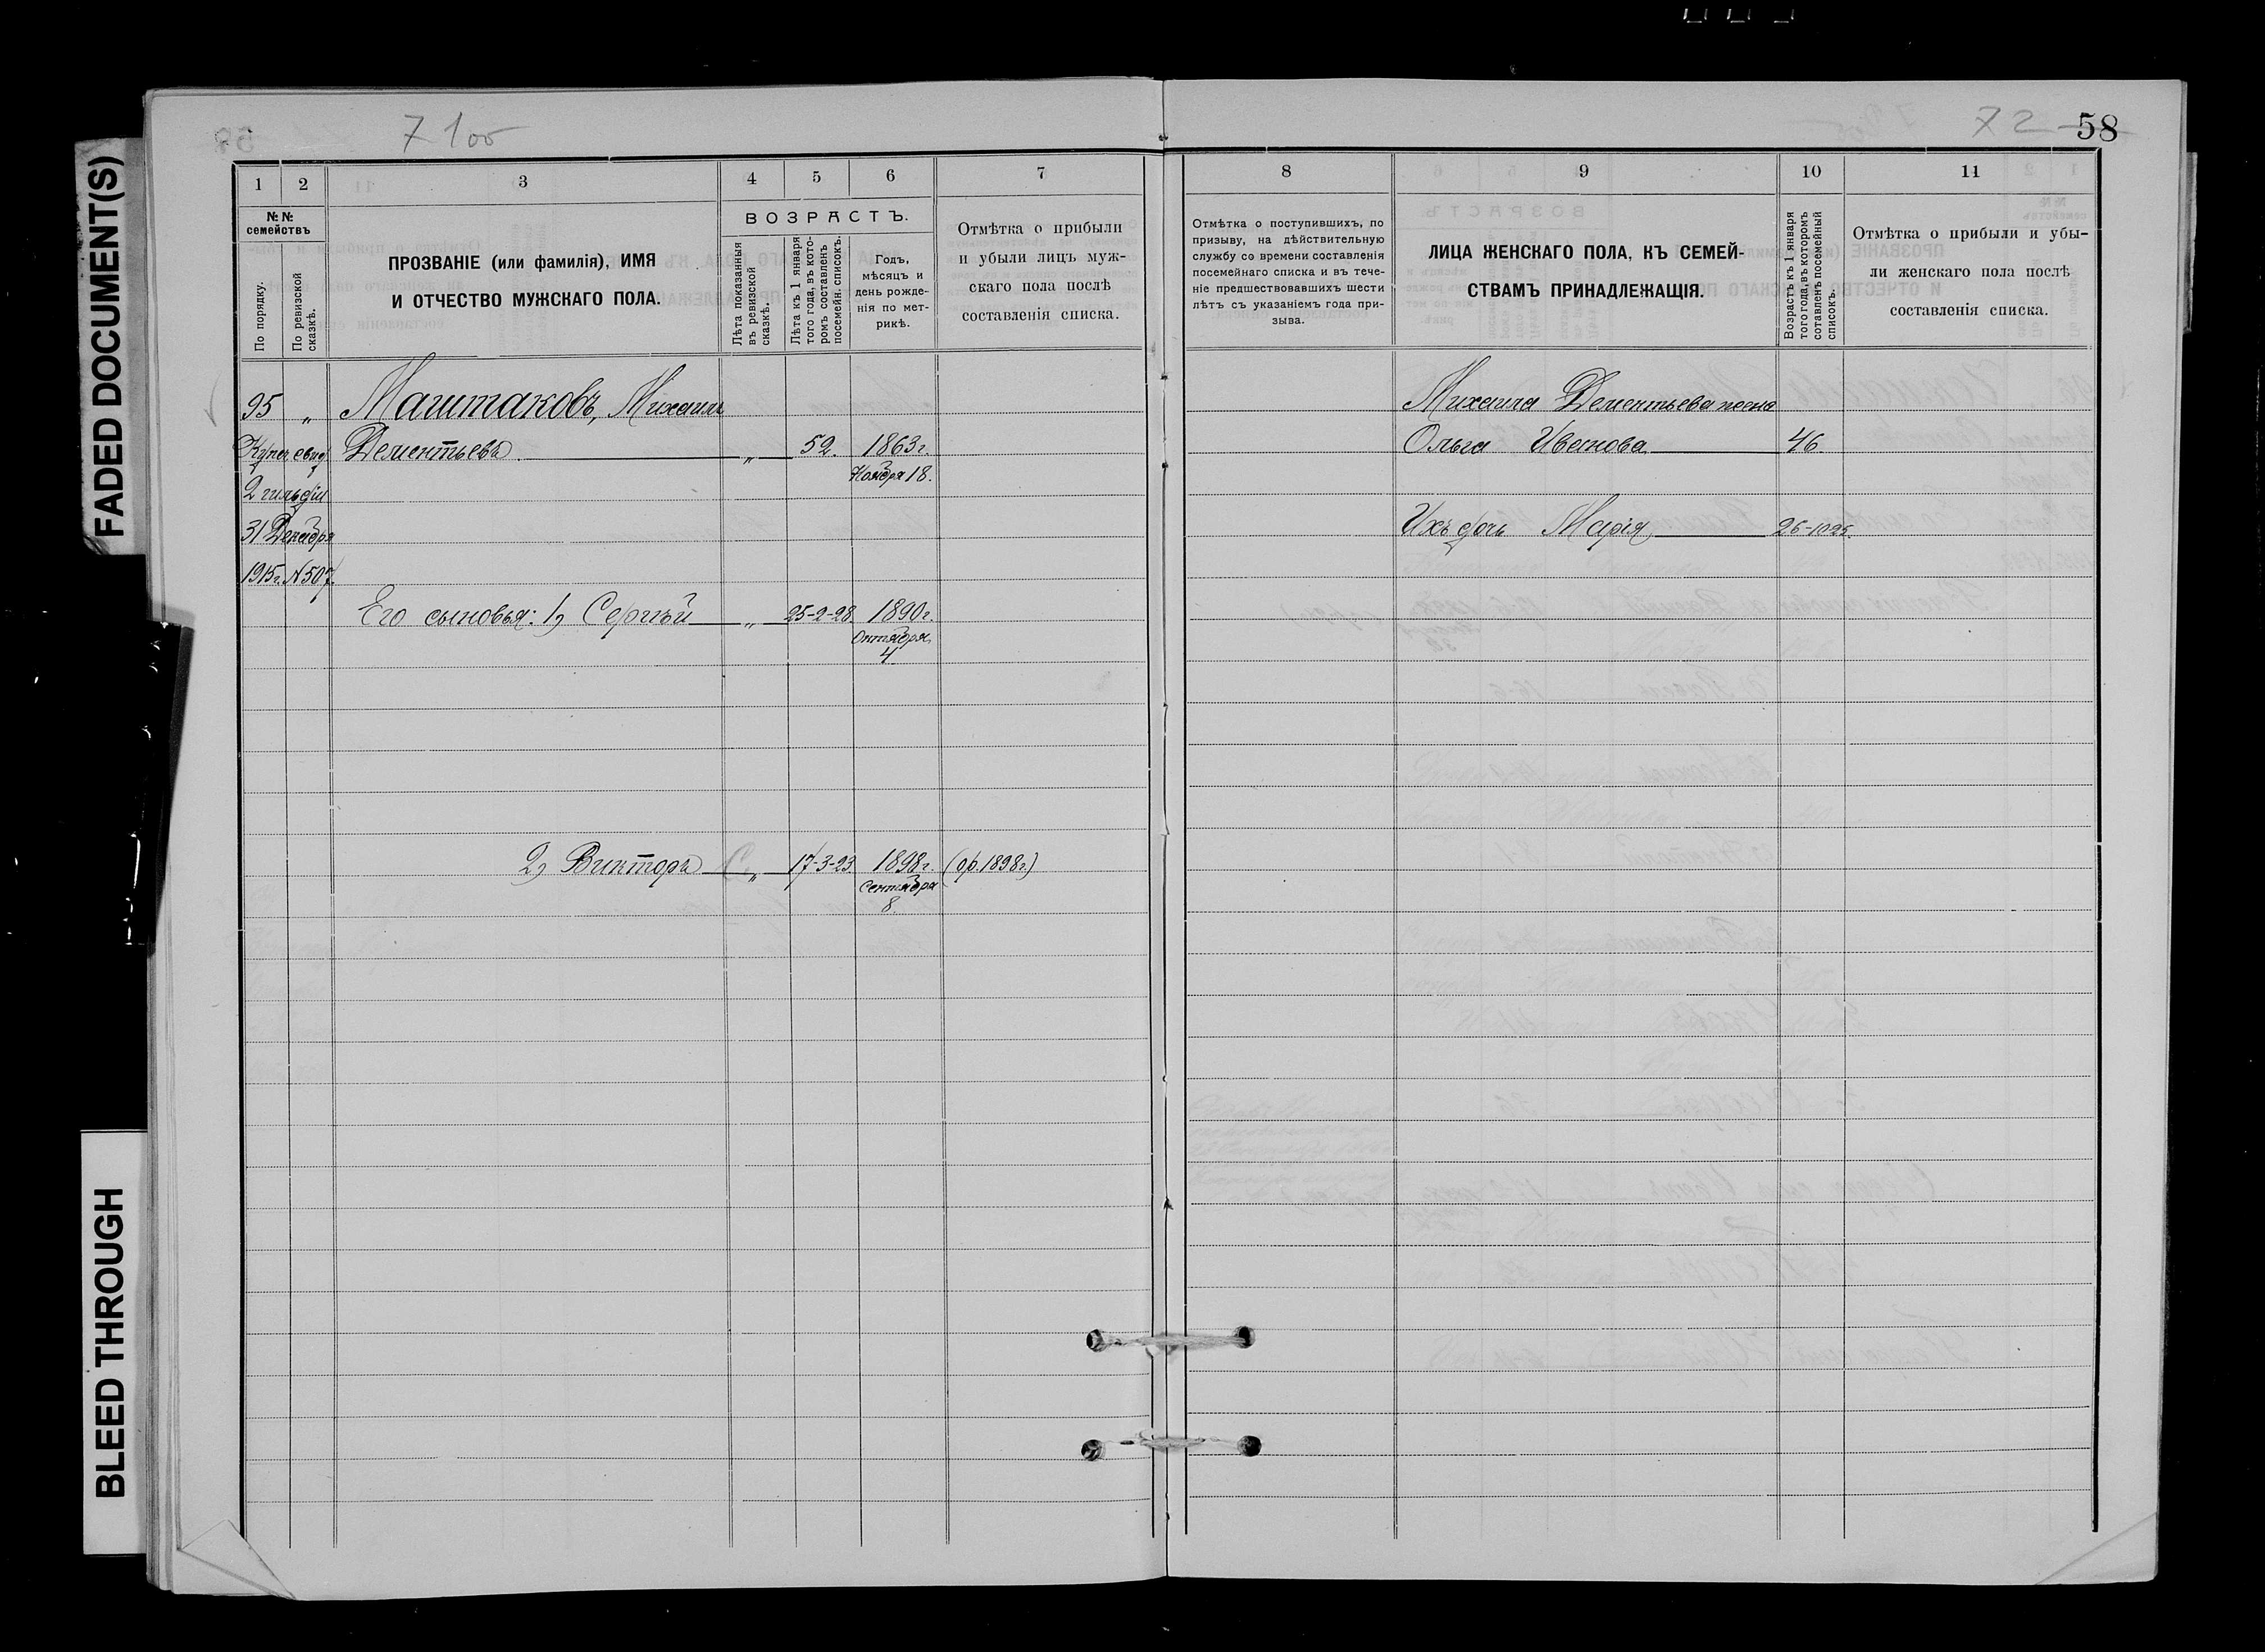 FADED DOCUMENT(S)
BLEED THROUGH
71 об
72 58
1 2 3 4 5 6 7
№ №
семействъ
По порядку.
По ревизской
сказкѣ.
ПРОЗВАНІЕ (или фамилія), ИМЯ
И ОТЧЕСТВО МУЖСКАГО ПОЛА.
ВОЗРАСТЪ.
Лѣта показанныя
въ ревизской
сказкѣ.
Лѣта къ 1 января
того года, въ кото-
ромъ составленъ
посемейн. списокъ.
Годъ,
мѣсяцъ и
день рожде-
нія по мет-
рикѣ.
Отмѣтка о прибыли
и убыли лицъ муж-
скаго пола послѣ
составленія списка.
95 „ Маштаковъ, Михаилъ
Купеч. свид. Дементьевъ „ 52. 1863 г.
2 гильдіи Ноября 18.
31 Декабря
1915 г. № 507.
Его сыновья: 1, Сергѣй „ 25-2-28 1890 г.
Октября
4.
2, Викторъ „ 17-3-23 1898 г. (ор. 1898 г.)
Сентября
8.
8 9 10 11
Отмѣтка о поступившихъ, по
призыву, на дѣйствительную
службу со времени составленія
посемейнаго списка и въ тече-
ніе предшествовавшихъ шести
лѣтъ съ указаніемъ года при-
зыва.
ЛИЦА ЖЕНСКАГО ПОЛА, КЪ СЕМЕЙ-
СТВАМЪ ПРИНАДЛЕЖАЩІЯ.
Возрастъ къ 1 января
того года, въ которомъ
составленъ посемейный
списокъ.
Отмѣтка о прибыли и убы-
ли женскаго пола послѣ
составленія списка.
Михаила Дементьева жена
Ольга Иванова 46.
Ихъ дочь Марія 26-1025.